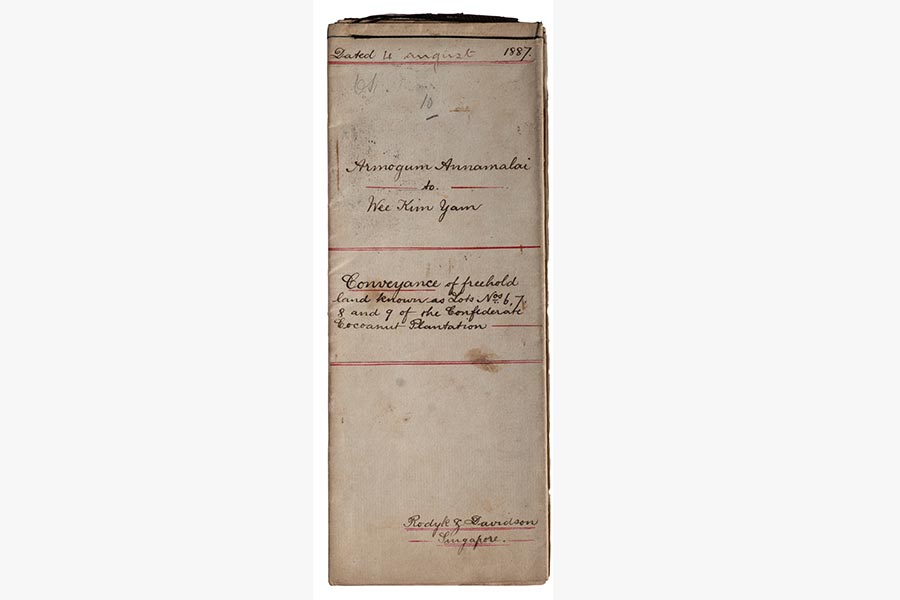 Dated 4 august 1887.
10
Armogum Annamalai
to.
Wee Kim Yam
Conveyance of freehold
land known as Lots Nos. 6, 7,
8 and 9 of the Confederate
Cocoanut Plantation
Rodyk & Davidson
Singapore.